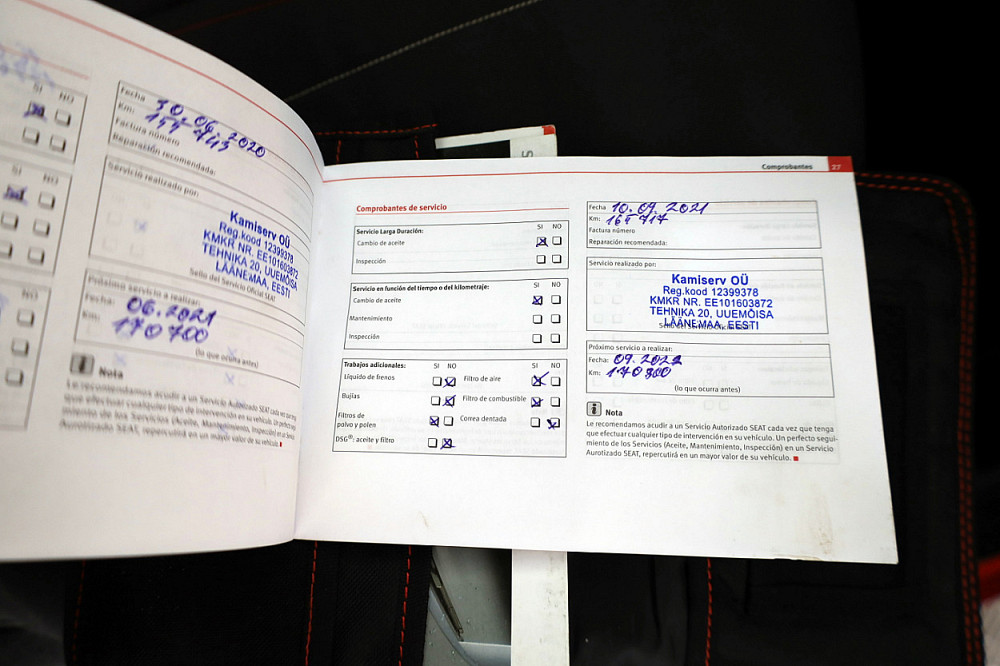 SI NO
SI NO
Fecha 10.06.2020
Km:
Factura número
Reparación recomendada:
Servicio realizado por:
Kamiserv OÜ
Reg.kood 12399378
KMKR NR. EE101603872
TEHNIKA 20, UUEMÕISA
LÄÄNEMAA, EESTI
Sello del Servicio Oficial SEAT
Próximo servicio a realizar:
Fecha: 06.2021
Km: 170 700
(lo que ocurra antes)
i Nota
Le recomendamos acudir a un Servicio Autorizado SEAT cada vez que tenga
que efectuar cualquier tipo de intervención en su vehículo. Un perfecto segui-
miento de los Servicios (Aceite, Mantenimiento, Inspección) en un Servicio
Aurotizado SEAT, repercutirá en un mayor valor de su vehículo.
Comprobantes 27
Comprobantes de servicio
Servicio Larga Duración: SI NO
Cambio de aceite
Inspección
Servicio en función del tiempo o del kilometraje: SI NO
Cambio de aceite
Mantenimiento
Inspección
Trabajos adicionales: SI NO SI NO
Líquido de frenos Filtro de aire
Bujías Filtro de combustible
Filtros de
polvo y polen Correa dentada
DSG®: aceite y filtro
Fecha 10.09.2021
Km: 164 717
Factura número
Reparación recomendada:
Servicio realizado por:
Kamiserv OÜ
Reg.kood 12399378
KMKR NR. EE101603872
TEHNIKA 20, UUEMÕISA
LÄÄNEMAA, EESTI
Próximo servicio a realizar:
Fecha: 09.2022
Km:
(lo que ocurra antes)
i Nota
Le recomendamos acudir a un Servicio Autorizado SEAT cada vez que tenga
que efectuar cualquier tipo de intervención en su vehículo. Un perfecto segui-
miento de los Servicios (Aceite, Mantenimiento, Inspección) en un Servicio
Aurotizado SEAT, repercutirá en un mayor valor de su vehículo.